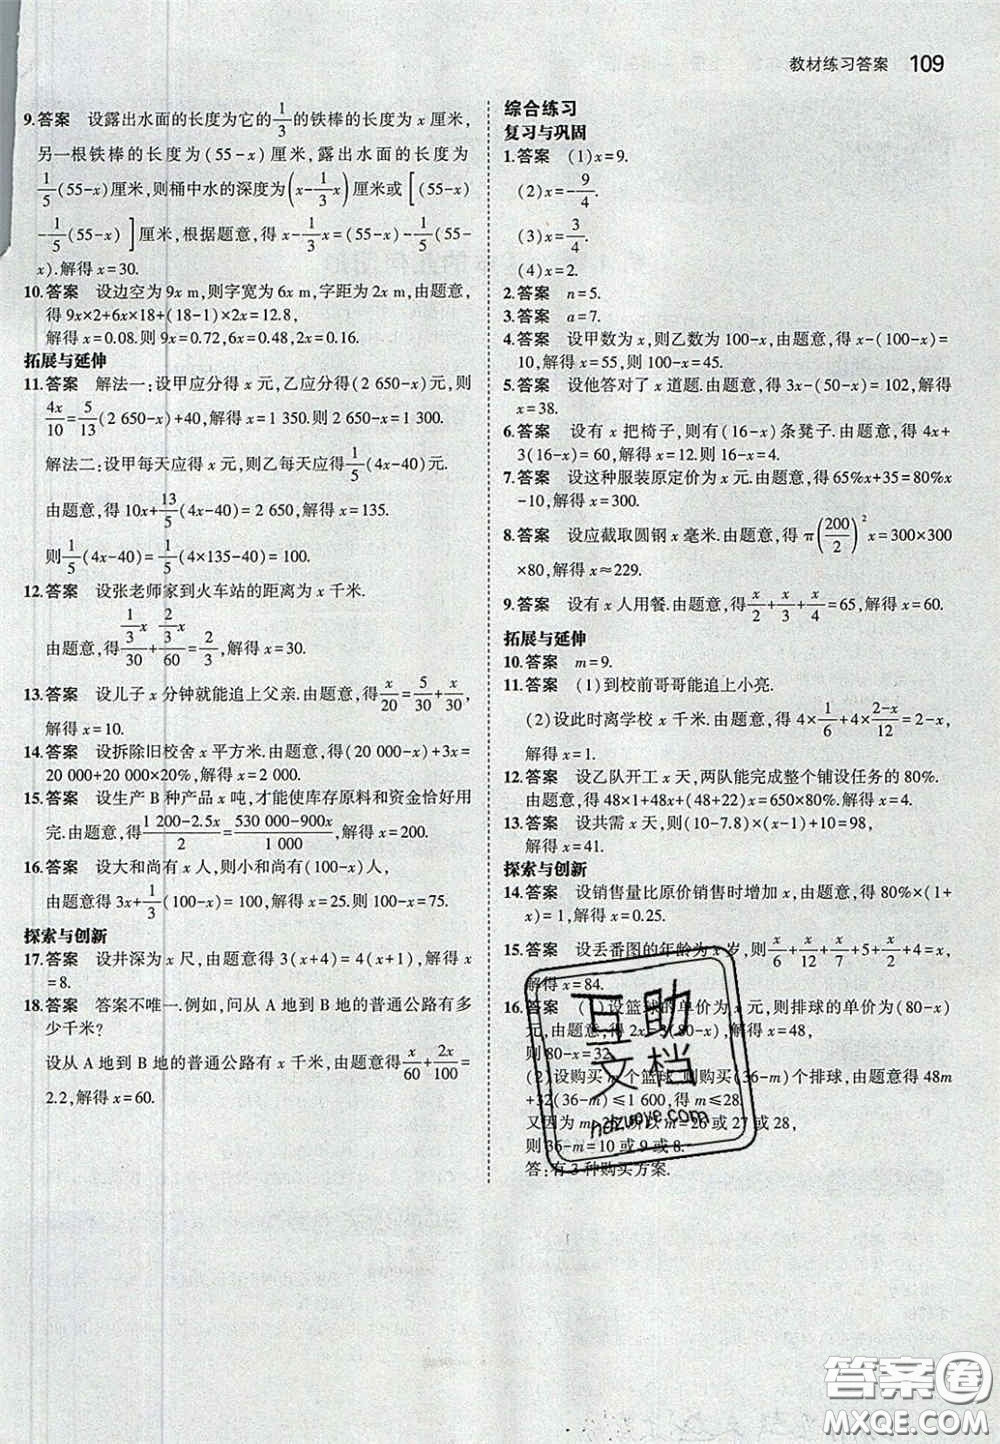 教材练习答案 109
9.答案 设露出水面的长度为它的1/3的铁棒的长度为x厘米,
另一根铁棒的长度为(55-x)厘米,露出水面的长度为
1/5(55-x)厘米,则桶中水的深度为(x-1/3x)厘米或[(55-x)
-1/5(55-x)]厘米,根据题意,得x-1/3x=(55-x)-1/5(55-
x).解得x=30.
10.答案 设边空为9x m,则字宽为6x m,字距为2x m,由题意,
得9x×2+6x×18+(18-1)×2x=12.8,
解得x=0.08.则9x=0.72,6x=0.48,2x=0.16.
拓展与延伸
11.答案 解法一:设甲应分得x元,乙应分得(2 650-x)元,则
4x/10=5/13(2 650-x)+40,解得x=1 350.则2 650-x=1 300.
解法二:设甲每天应得x元,则乙每天应得1/5(4x-40)元.
由题意,得10x+13/5(4x-40)=2 650,解得x=135.
则1/5(4x-40)=1/5(4×135-40)=100.
12.答案 设张老师家到火车站的距离为x千米.
由题意,得(1/3x)/30+(2/3x)/60=2/3,解得x=30.
13.答案 设儿子x分钟就能追上父亲.由题意,得x/20=5/30+x/30,
解得x=10.
14.答案 设拆除旧校舍x平方米.由题意,得(20 000-x)+3x=
20 000+20 000×20%,解得x=2 000.
15.答案 设生产B种产品x吨,才能使库存原料和资金恰好用
完.由题意,得(1 200-2.5x)/2=(530 000-900x)/1 000,解得x=200.
16.答案 设大和尚有x人,则小和尚有(100-x)人,
由题意,得3x+1/3(100-x)=100,解得x=25.则100-x=75.
探索与创新
17.答案 设井深为x尺,由题意得3(x+4)=4(x+1),解得x
=8.
18.答案 答案不唯一.例如,问从A地到B地的普通公路有多
少千米?
设从A地到B地的普通公路有x千米,由题意得x/60+2x/100=
2.2,解得x=60.
综合练习
复习与巩固
1.答案 (1)x=9.
(2)x=-9/4.
(3)x=3/4.
(4)x=2.
2.答案 n=5.
3.答案 a=7.
4.答案 设甲数为x,则乙数为100-x,由题意,得x-(100-x)=
10,解得x=55,则100-x=45.
5.答案 设他答对了x道题.由题意,得3x-(50-x)=102,解得
x=38.
6.答案 设有x把椅子,则有(16-x)条凳子.由题意,得4x+
3(16-x)=60,解得x=12.则16-x=4.
7.答案 设这种服装原定价为x元.由题意,得65%x+35=80%x
-10,解得x=300.
8.答案 设应截取圆钢x毫米.由题意,得π(200/2)²x=300×300
×80,解得x≈229.
9.答案 设有x人用餐.由题意,得x/2+x/3+x/4=65,解得x=60.
拓展与延伸
10.答案 m=9.
11.答案 (1)到校前哥哥能追上小亮.
(2)设此时离学校x千米.由题意,得4×1/6+4×(2-x)/12=2-x,
解得x=1.
12.答案 设乙队开工x天,两队能完成整个铺设任务的80%.
由题意,得48×1+48x+(48+22)x=650×80%,解得x=4.
13.答案 设共需x天,则(10-7.8)×(x-1)+10=98,
解得x=41.
探索与创新
14.答案 设销售量比原价销售时增加x,由题意,得80%×(1+
x)=1,解得x=0.25.
15.答案 设丢番图的年龄为x岁,则x/6+x/12+x/7+5+x/2+4=x,
解得x=84.
16.答案 (1)设篮球的单价为x元,则排球的单价为(80-x)
元,由题意,得2x=3(80-x),解得x=48,
则80-x=32.
(2)设购买m个篮球,则购买(36-m)个排球,由题意得48m
+32(36-m)≤1 600,解得m≤28.
又因为m>25,所以m=26或27或28,
则36-m=10或9或8.
答:有3种购买方案.
互助
文档
hdzuoye.com
答案圈
MXQE.COM